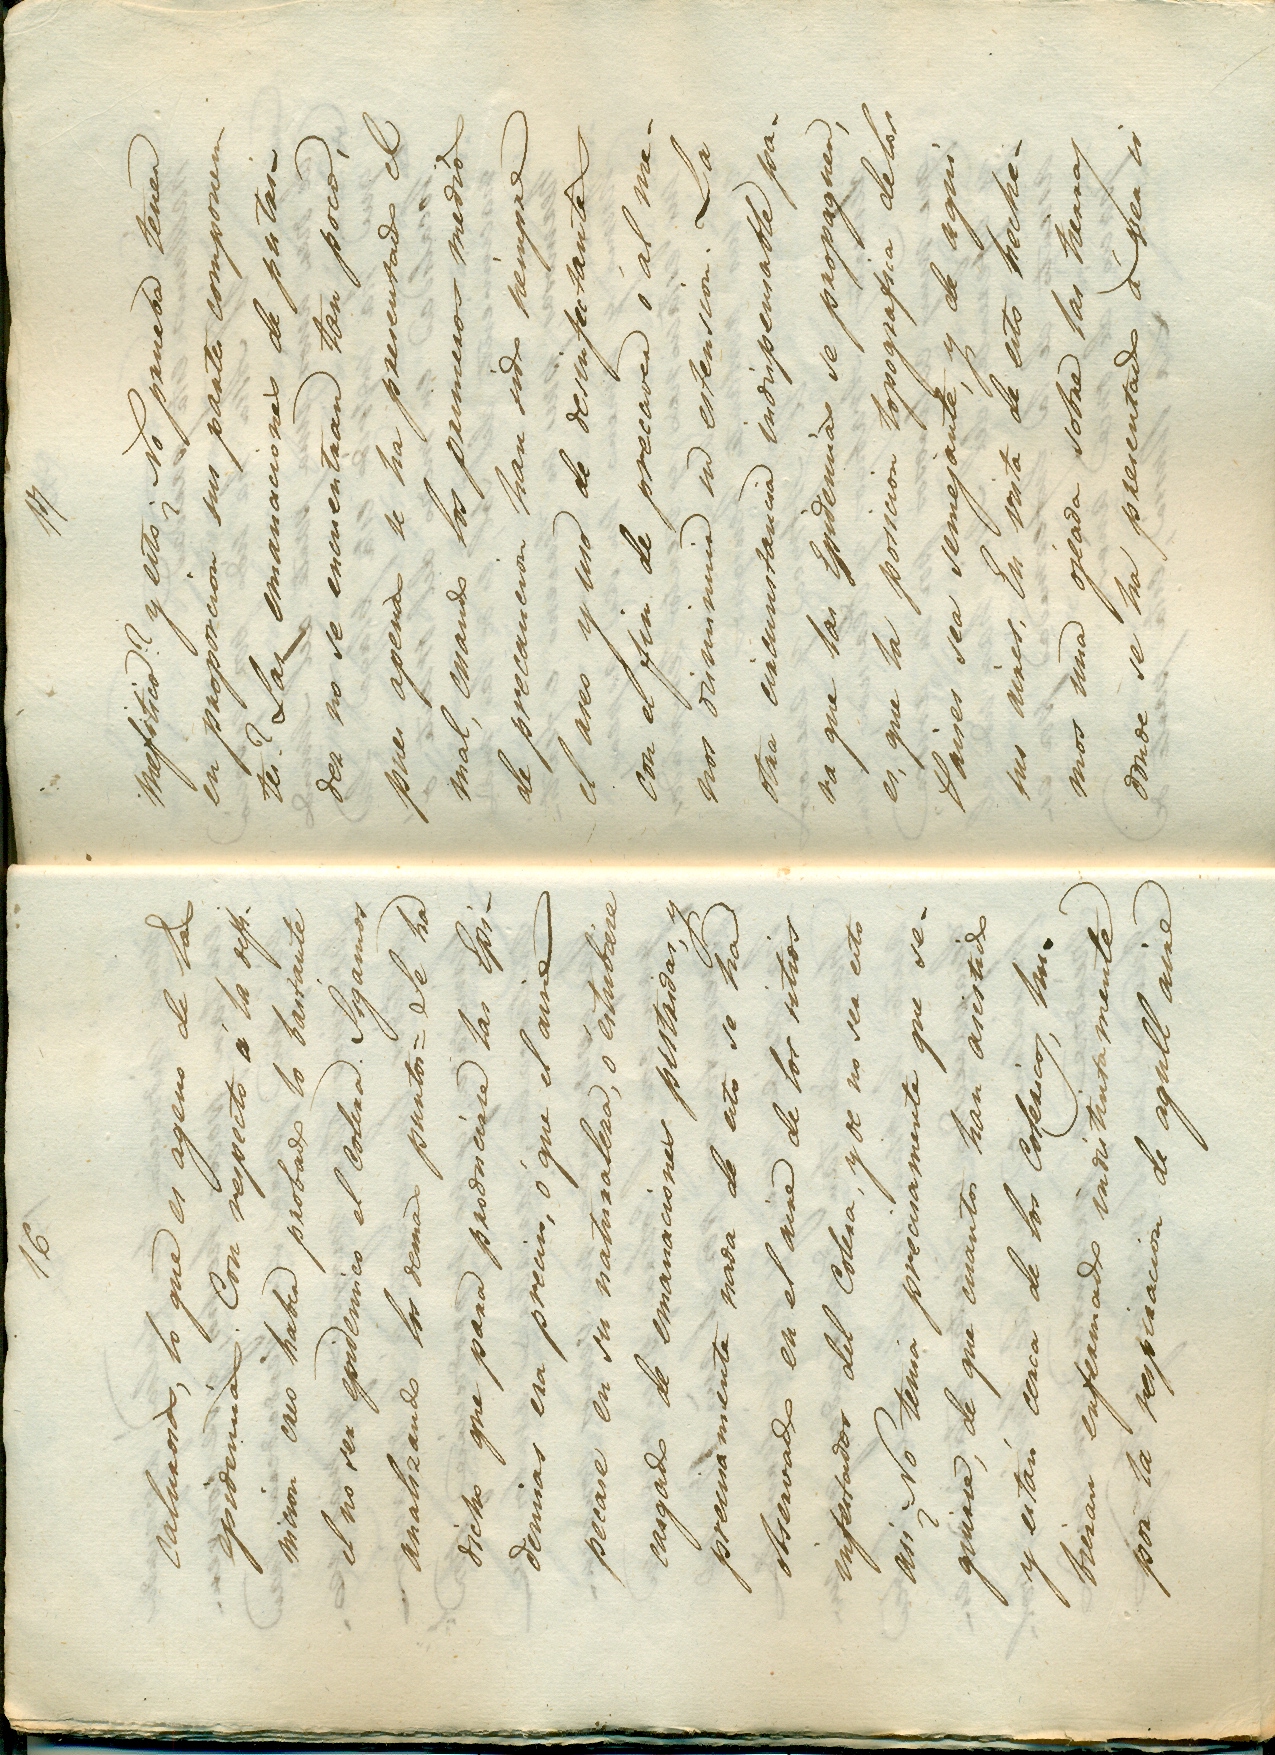 16
calmado, lo que es ageno de las
epidemias. Con respecto a la defi-
nicion creo haber probado lo bastante
el no ser epidemico el Colera. Sigamos
analizando los demas puntos = Se ha
dicho que para producirse las Epi-
demias era preciso, ó que el aire
pecase en su naturaleza, o estubiese
cargado de emanaciones pestiferas, y
precisamente nada de esto se ha
observado en el aire de los sitios
infestados del Colera, y de no ser esto
asi ¿No tenia precisamente que se-
guirse, de que cuantos han asistido
y están cerca de los Colericos, hu-
bieran enfermado indistintamente
por la respiracion de aquell aire
17
mefitico? y esto ¿No prueba tener
en proporcion sus partes componen-
tes? Las emanaciones de putas-
des no se encuentran tan poco,
pues apenas se ha presentado el
mal, cuando los primeros medios
de precaucion han sido siempre
el aseo y uso de desinfectantes
con el fin de precaver ó al me-
nos disminuir su estension. La
otra circunstancia indispensable pa-
ra que las Epidemias se propaguen,
es, que la posicion topografica de los
Paises sea semejante, y de aqui
sus aires. En vista de esto heche-
mos una ojeada sobre las tierras
donde se ha presentado ó sea in